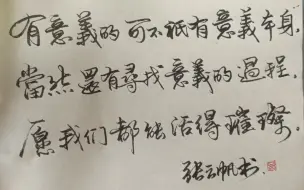 有意義的可不祇有意義本身，
當然還有尋找意義的過程.
愿我们都能活得璀璨.
張云帆书.